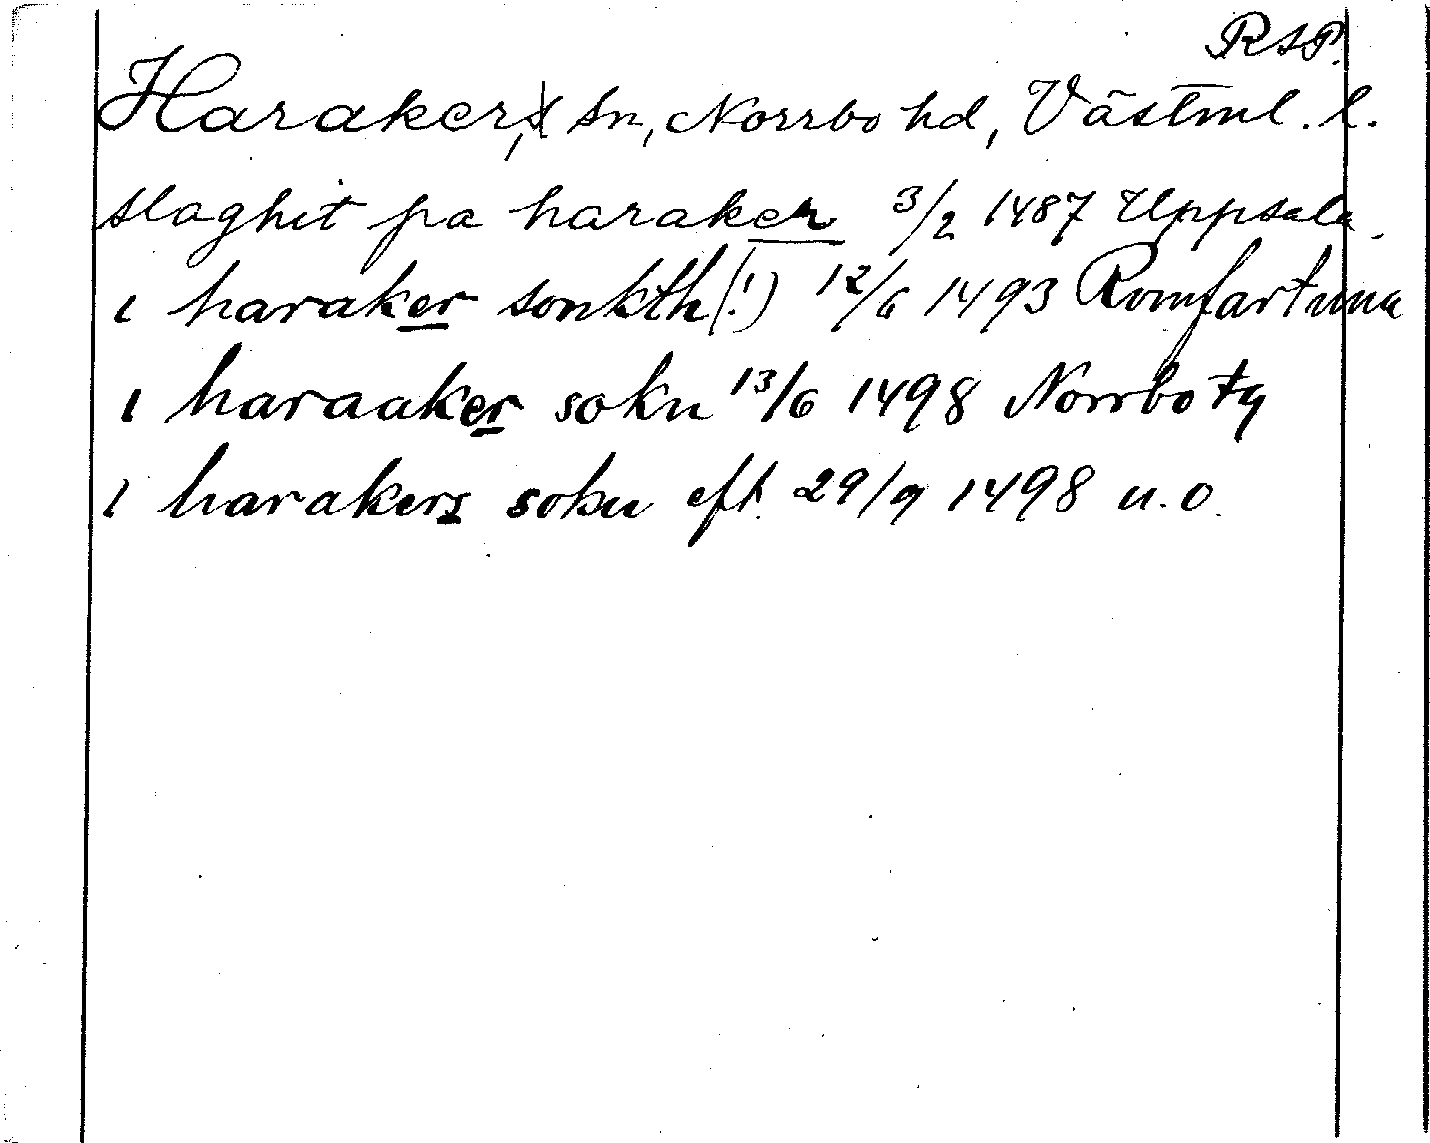 RAP.
Haraker, sn, Norrbo hd, Västml. l.
slaghit pa haraker 3/2 1487 Uppsala.
i haraker sonkth (!) 12/6 1493 Romfartuna
i haraaker sokn 13/6 1498 Norrbo ty
i harakers sokn eft. 29/9 1498 u.o.